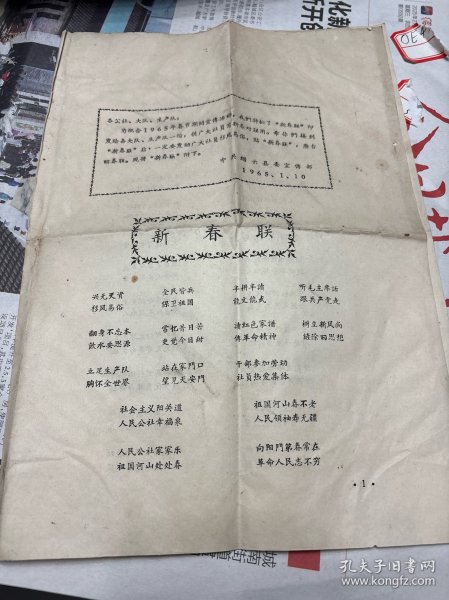 各公社、大队、生产队:
为配合1965年春节期间宣传活动,我们拟编了"新春联"印
发给各大队、生产队一份,供广大社员
"新春联"后,一定要发动广大社员
新春联。现将"新春联"附下。
中共 县委宣传部
1965.1.10
新春联
兴无灭资
移风易俗
全民皆兵
保卫祖国
半耕半读
能文能武
听毛主席话
跟共产党走
翻身不忘本
饮水要思源
常忆昔日苦
更觉今日甜
清红色家谱
传革命精神
树立新风尚
破除旧思想
立足生产队
胸怀全世界
站在家门口
望见天安门
干部参加劳动
社员热爱集体
社会主义阳关道
人民公社幸福泉
祖国河山春不老
人民领袖寿无疆
人民公社家家乐
祖国河山处处春
向阳门第春常在
革命人民志不穷
·1·
孔夫子旧书网
www.kongfz.com